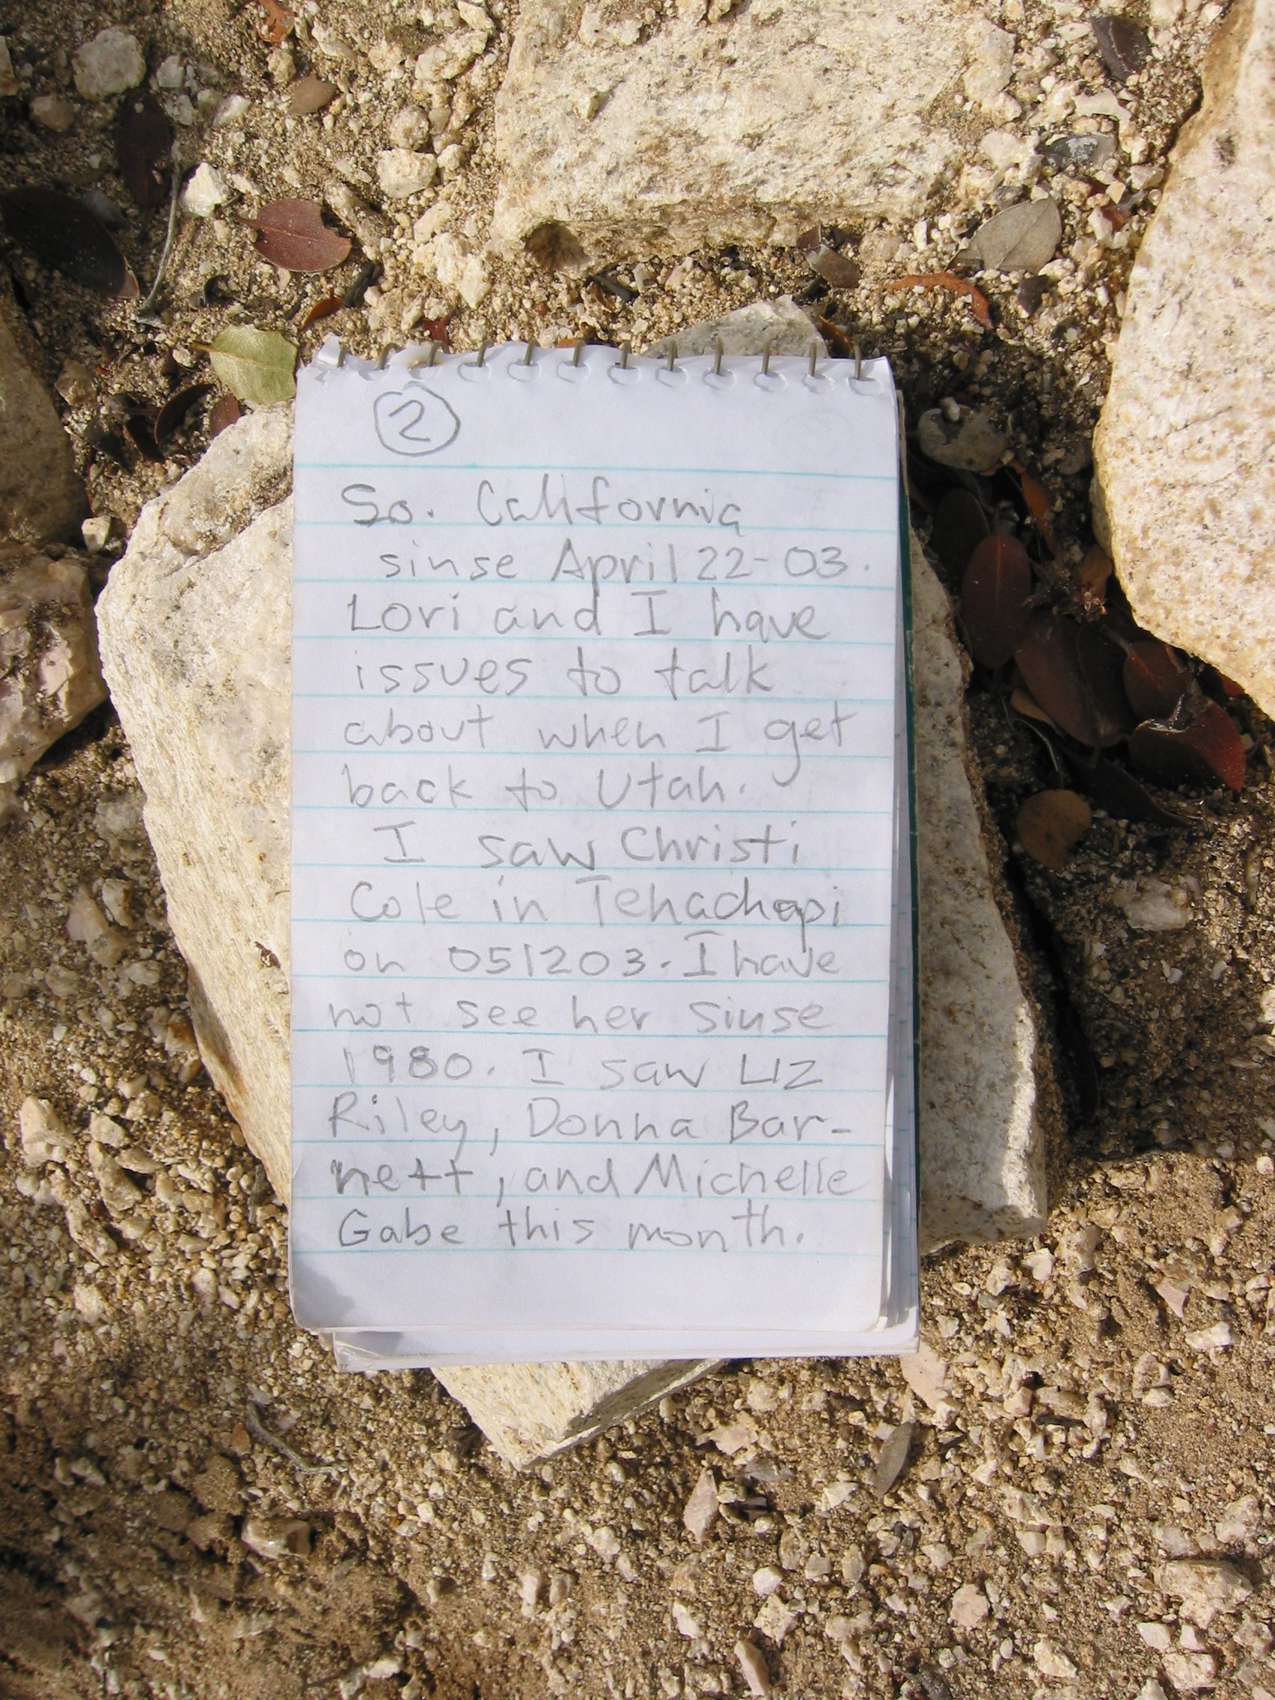 2
So. California
sinse April 22-03.
Lori and I have
issues to talk
about when I get
back to Utah.
I saw Christi
Cole in Tehachapi
on 051203. I have
not see her sinse
1980. I saw LIZ
Riley, Donna Bar-
nett, and Michelle
Gabe this month.